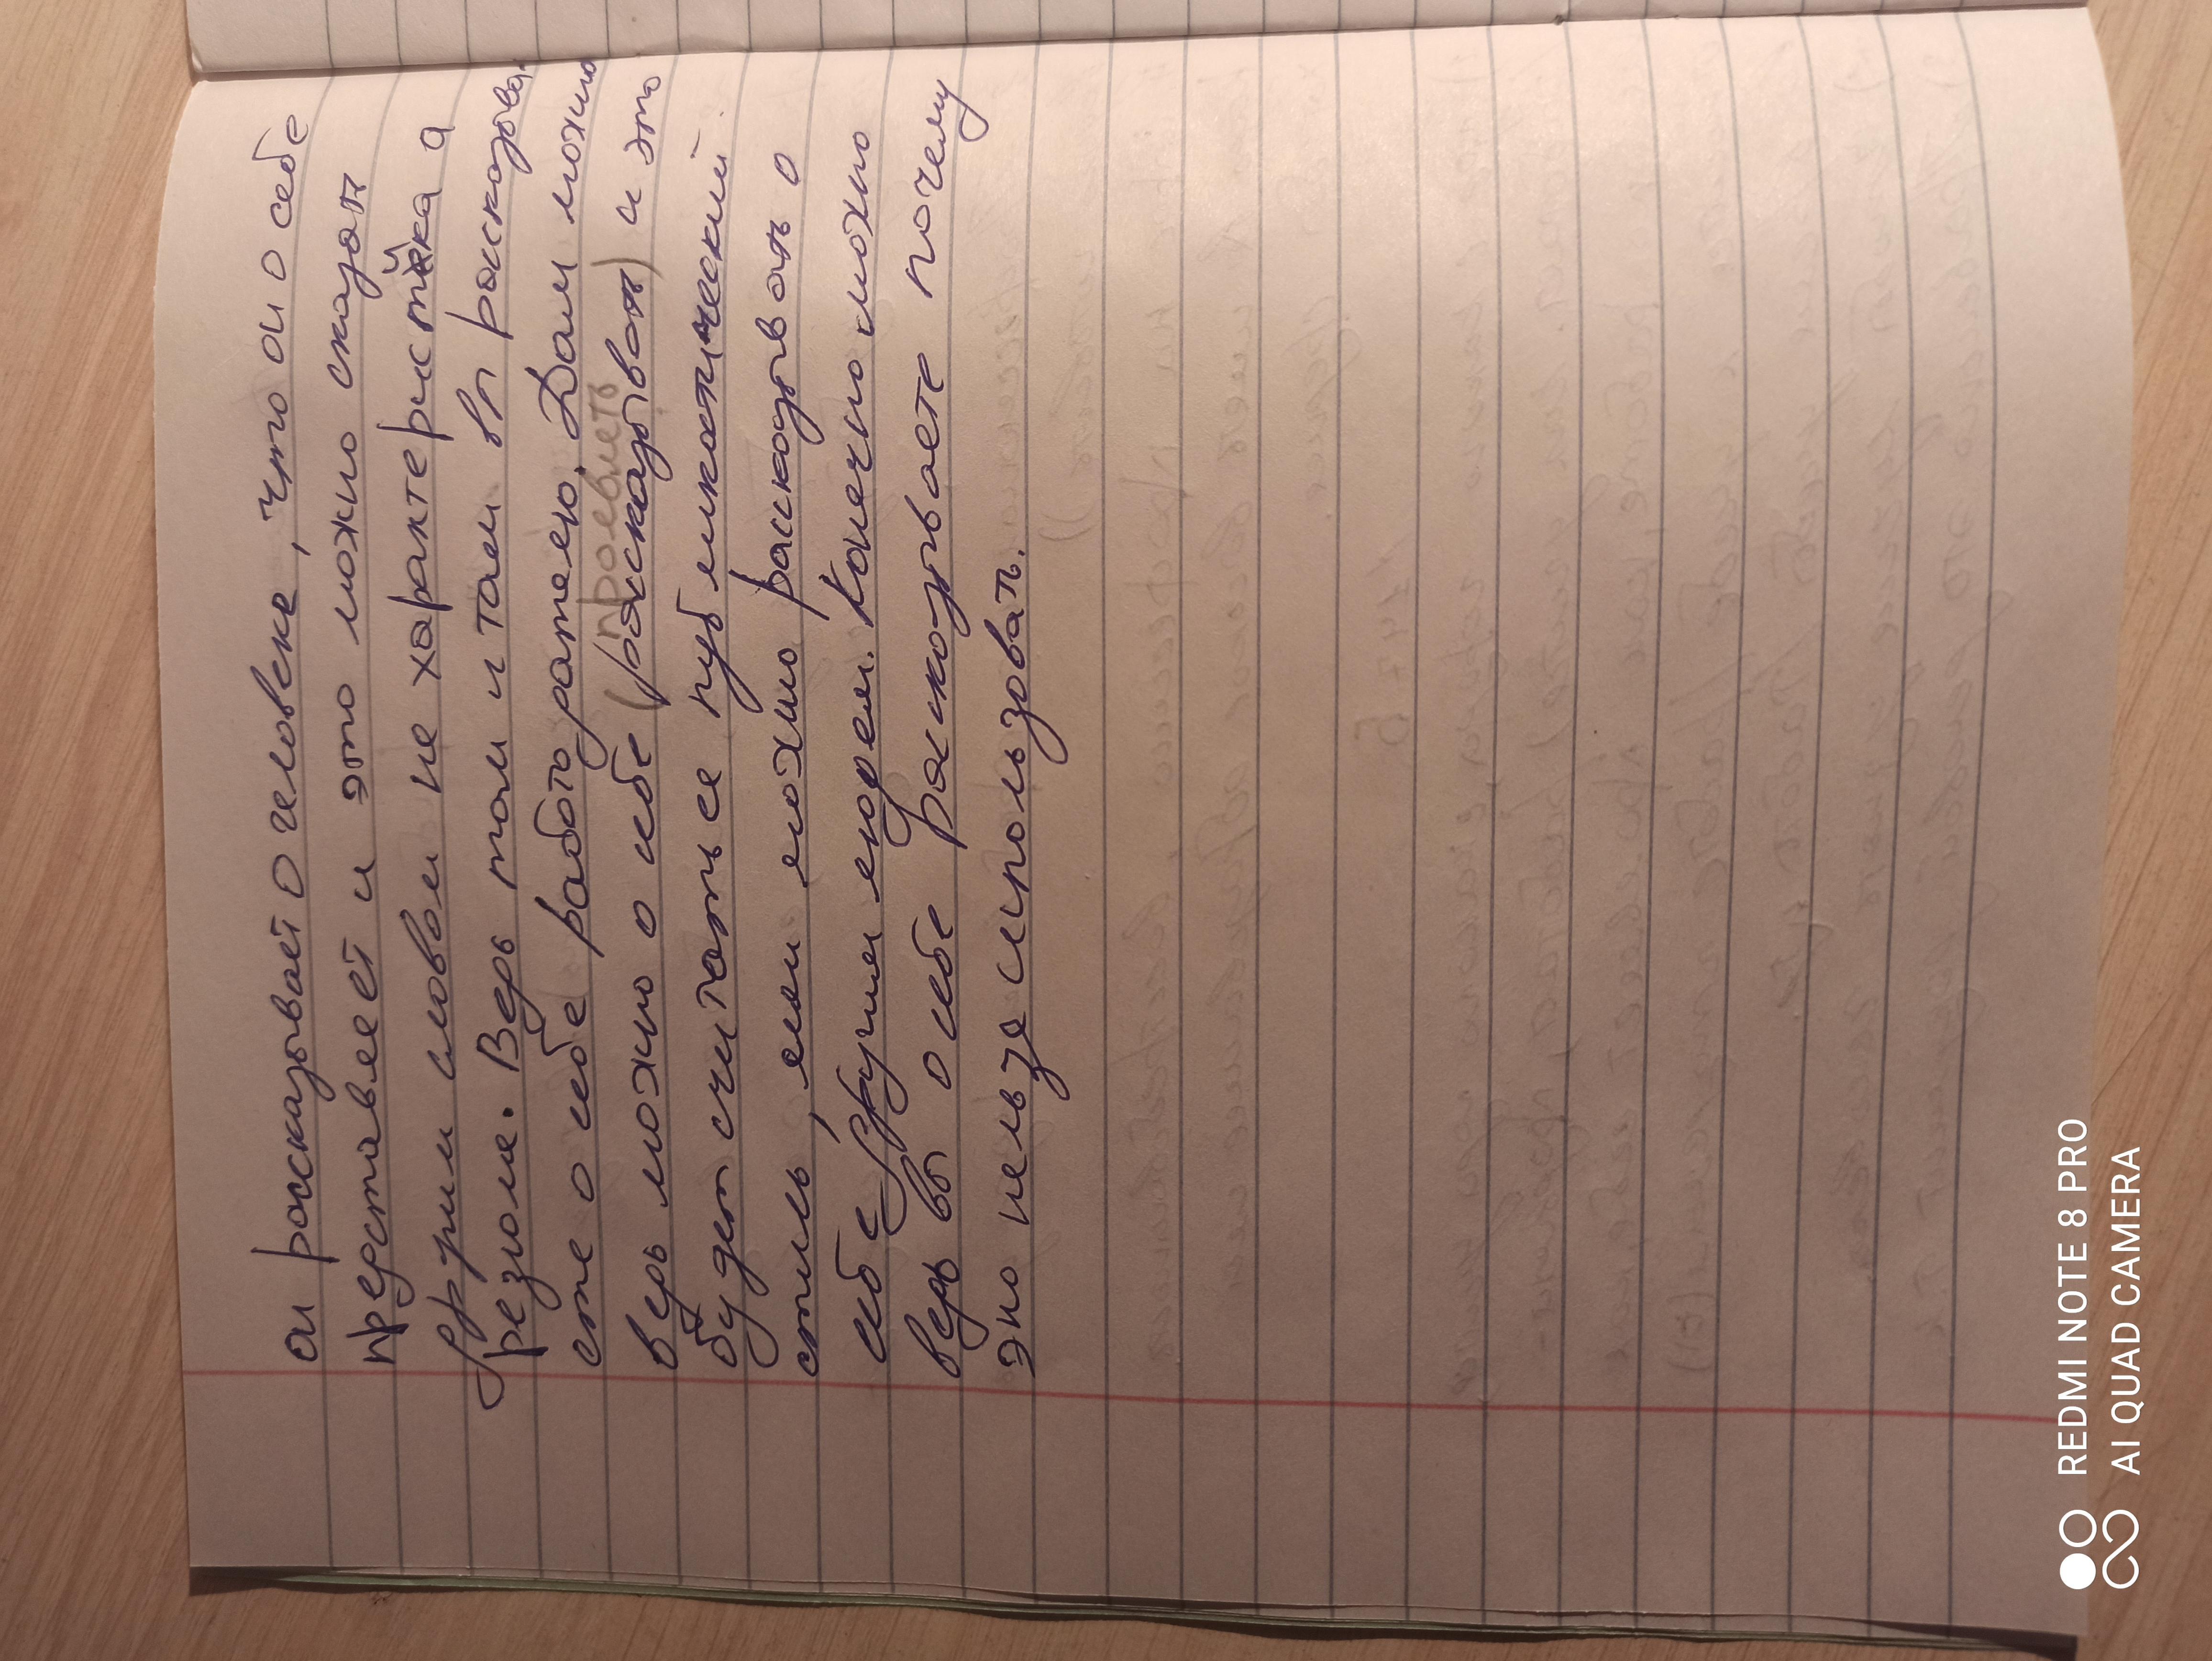 он россказывает о человеке, что он о себе
предствавляет и это можно сказат
другим словом не характеристика а
резюме. Ведь там и таем вы россказыва-
ете о себе работорателю. Вам можно
ведь можно о себе (россказывать) и это
проевлеть
будет считаться публикатический
стиль, если можно рассказывать о
себе другим людем. Конечно можно
ведь вы о себе россказываете почему
это нельзя использовать.
REDMI NOTE 8 PRO
AI QUAD CAMERA